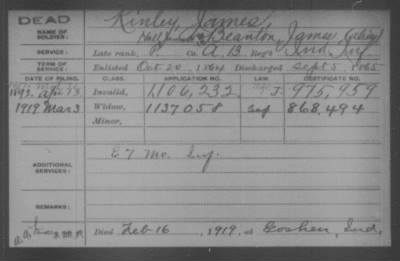 DEAD
NAME OF SOLDIER: Kinley James,
Scanton, James (alias)
SERVICE: Late rank, P. Co. A, B, Reg't Ind. Inf.
TERM OF SERVICE: Enlisted Oct 20, 1864 Discharged Sept 5, 1865
DATE OF FILING. CLASS. APPLICATION NO. LAW. CERTIFICATE NO.
Invalid, 1,106,232 975,959
1919 Mar 3 Widow, 1137058 868,494
Minor,
ADDITIONAL SERVICES: E 7 Mo. Inf.
REMARKS:
Died Feb 16, 1919, at Goshen, Ind.